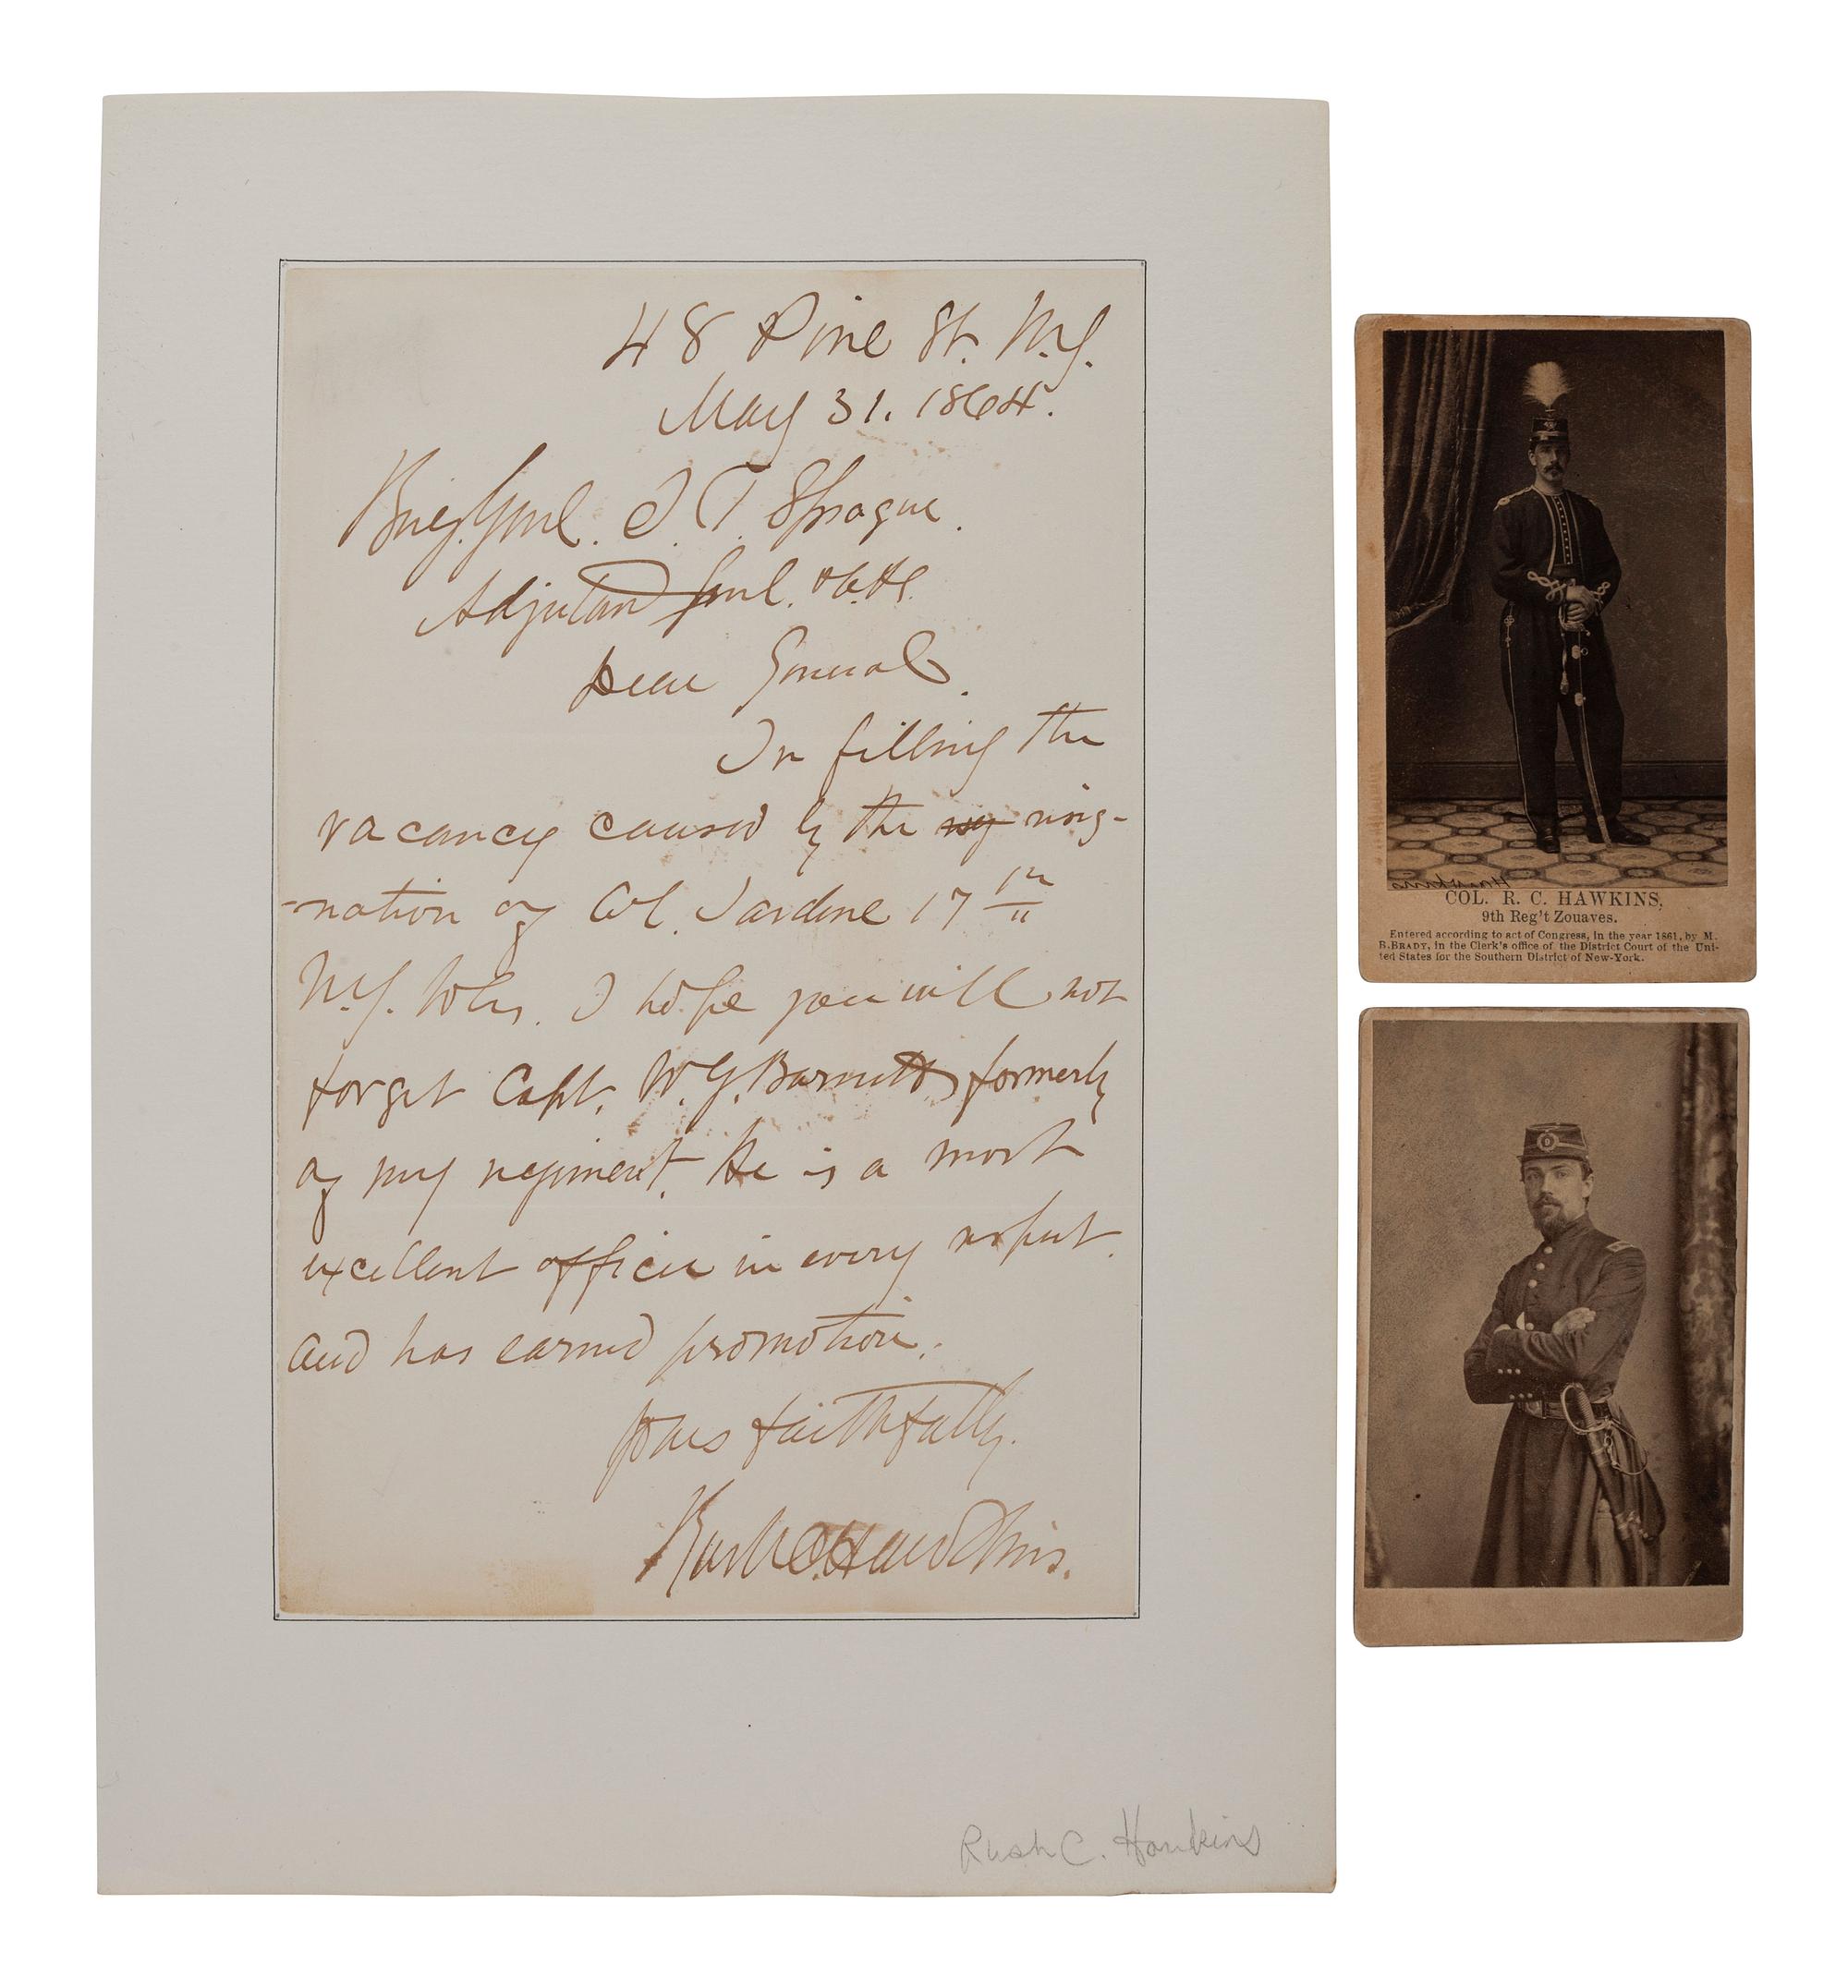 48 Pine St. N.Y.
May 31. 1864.
Brig. Genl. J. T. Sprague.
Adjutant Genl.
Dear General.
In filling the
vacancy caused by the resig-
-nation of Col. Jardine 17th
N.Y. Vols. I hope you will not
forget Capt. W. G. Barnett, formerly
of my regiment. He is a most
excellent officer in every respect.
and has earned promotion.
Yours faithfully.
Rush C. Hawkins.
Rush C. Hawkins
Hawkins
COL. R. C. HAWKINS,
9th Reg't Zouaves.
Entered according to act of Congress, in the year 1861, by M.
B. BRADY, in the Clerk's office of the District Court of the Uni-
ted States for the Southern District of New-York.